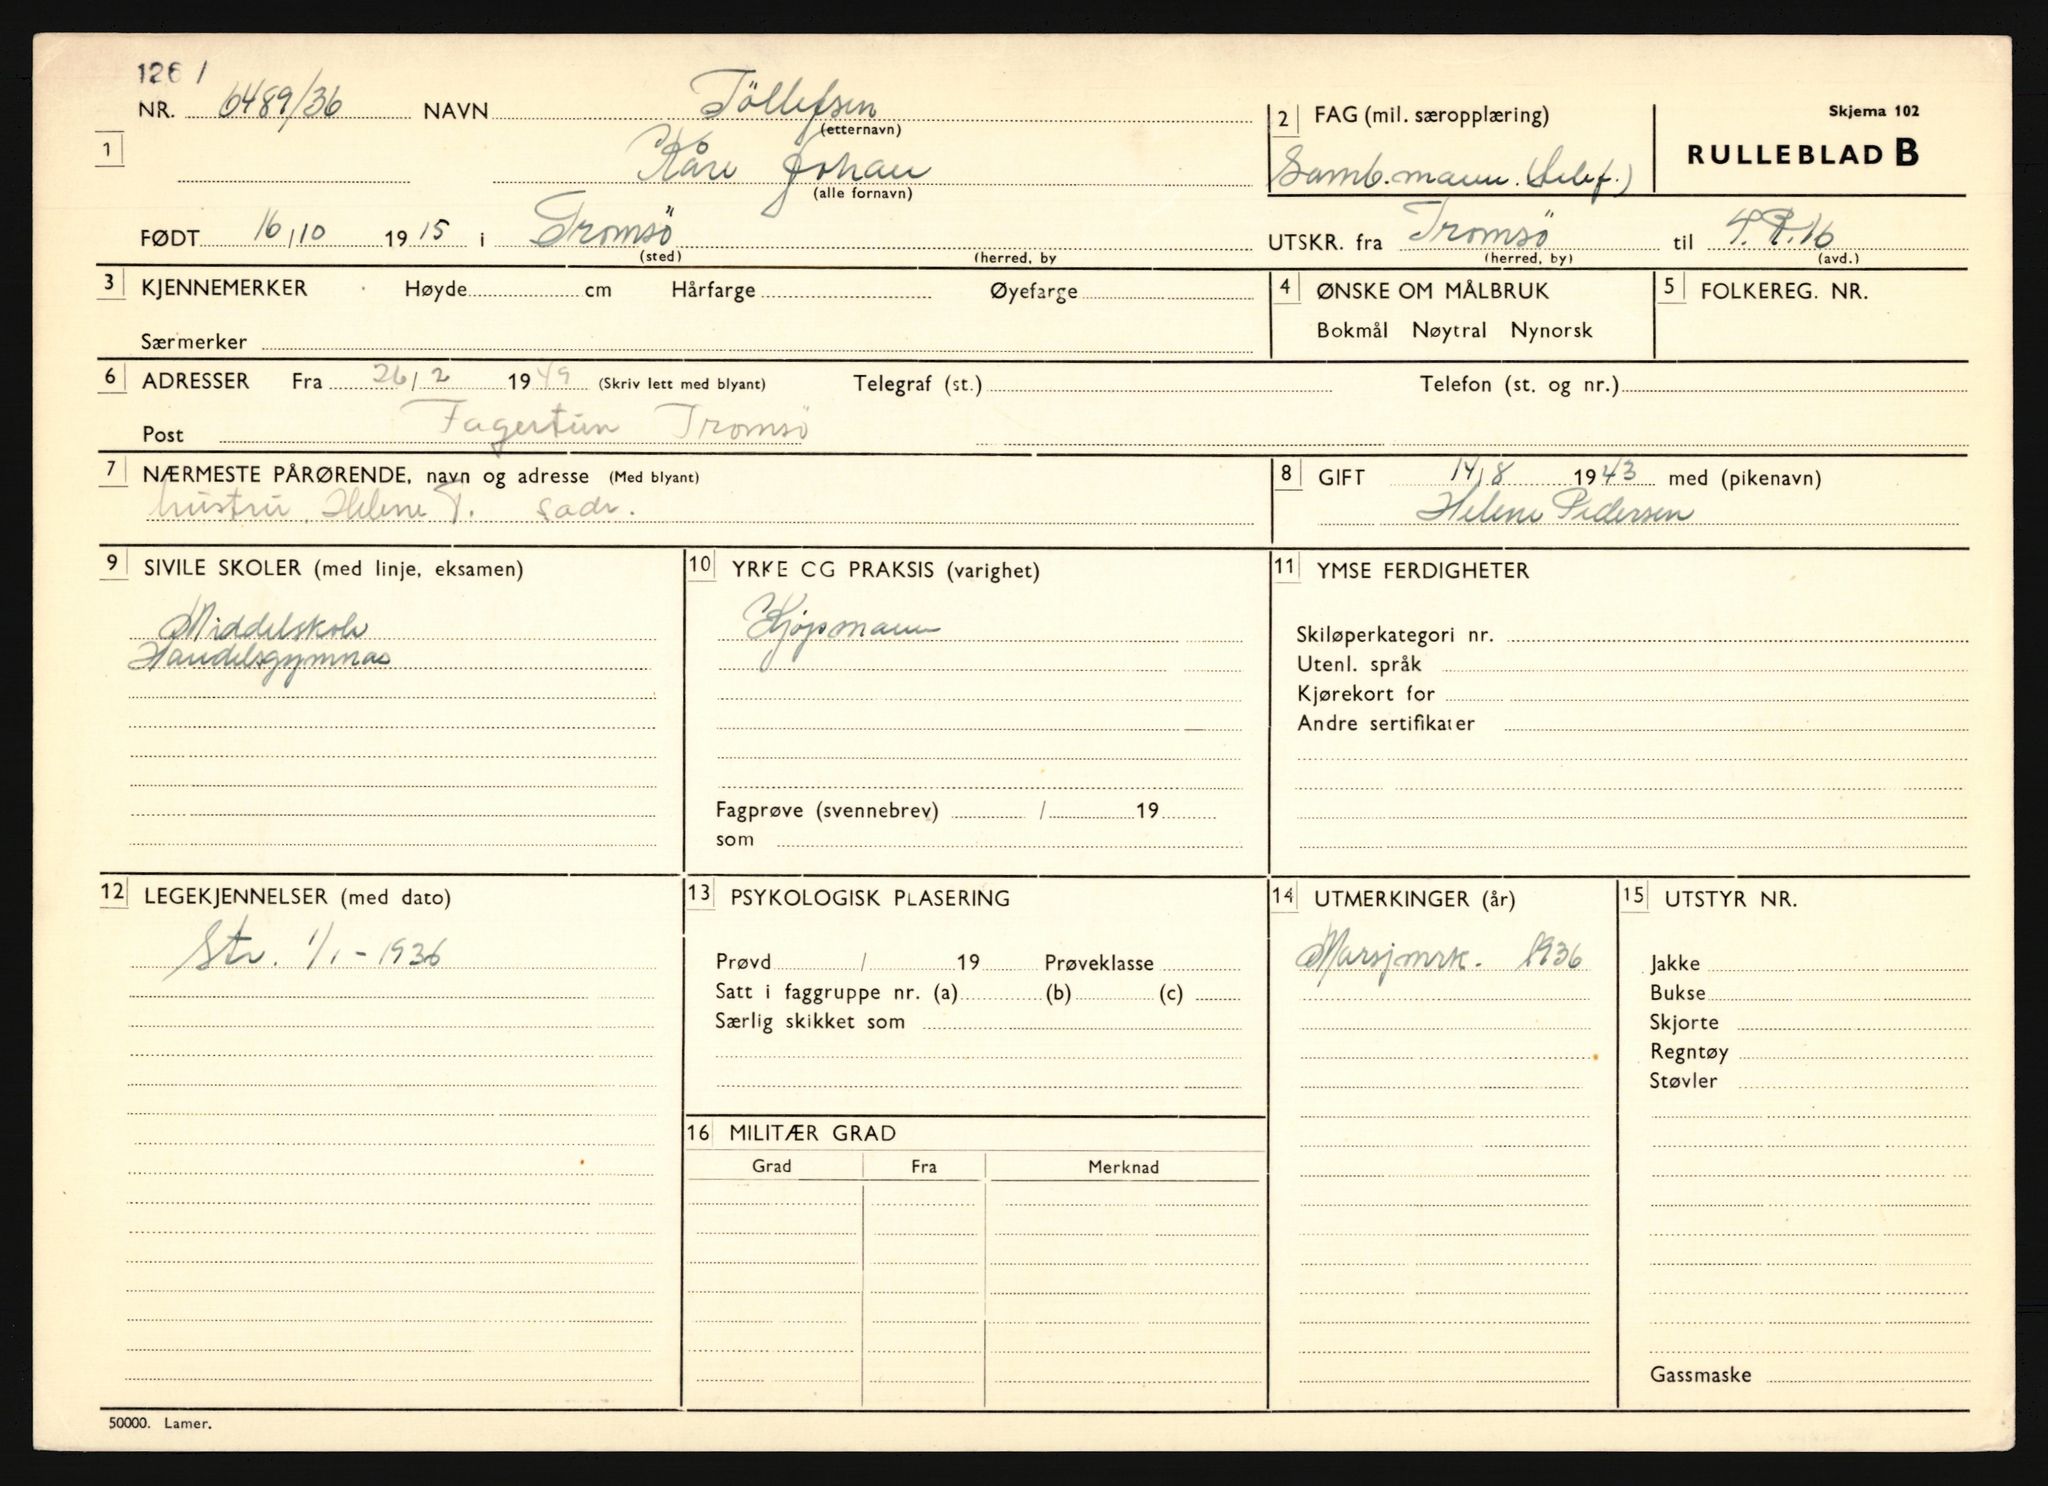 1261
NR. 6489/36 NAVN Töllefsen
(etternavn)
1 Kåre Johan
(alle fornavn)
2 FAG (mil. særopplæring)
Samb.mann. (telef.)
Skjema 102
RULLEBLAD B
FØDT 16/10 1915 i Tromsö
(sted) (herred, by
UTSKR. fra Tromsö til I.R.16
(herred, by) (avd.)
3 KJENNEMERKER Høyde cm Hårfarge Øyefarge
Særmerker
4 ØNSKE OM MÅLBRUK
Bokmål Nøytral Nynorsk
5 FOLKEREG. NR.
6 ADRESSER Fra 26/2 1949 (Skriv lett med blyant) Telegraf (st.) Telefon (st. og nr.)
Post Fagertun Tromsö
7 NÆRMESTE PÅRØRENDE, navn og adresse (Med blyant)
hustru, Helene T. sadr.
8 GIFT 14/8 1943 med (pikenavn)
Helene Pedersen
9 SIVILE SKOLER (med linje, eksamen)
Middelskole
Handelsgymnas
10 YRKE CG PRAKSIS (varighet)
Kjøpmann
Fagprøve (svennebrev) / 19
som
11 YMSE FERDIGHETER
Skiløperkategori nr.
Utenl. språk
Kjørekort for
Andre sertifikater
12 LEGEKJENNELSER (med dato)
Str. 1/1-1936
13 PSYKOLOGISK PLASERING
Prøvd / 19 Prøveklasse
Satt i faggruppe nr. (a) (b) (c)
Særlig skikket som
14 UTMERKINGER (år)
Marsjmrk. 1936
15 UTSTYR NR.
Jakke
Bukse
Skjorte
Regntøy
Støvler
Gassmaske
16 MILITÆR GRAD
Grad Fra Merknad
50000. Lamer.